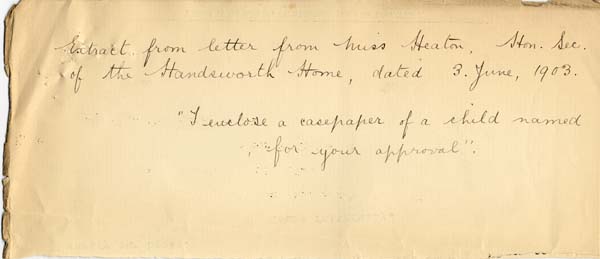 Extract from letter from Miss Heaton, Hon. Sec.
of the Handsworth Home, dated 3. June, 1903.
"I enclose a casepaper of a child named
for your approval".